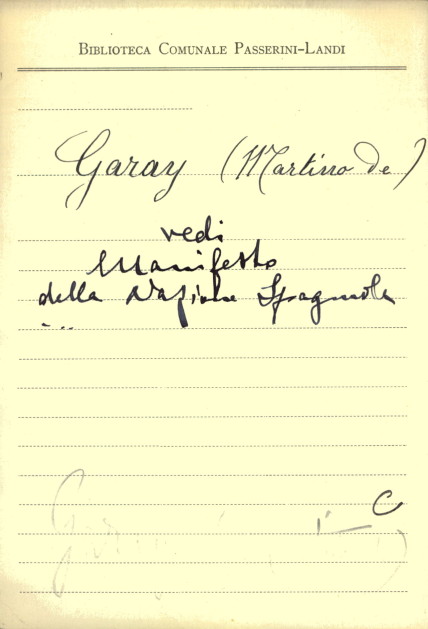 BIBLIOTECA COMUNALE PASSERINI-LANDI
Garay (Martino de)
vedi
Manifesto
della Nazione Spagnola
...
C